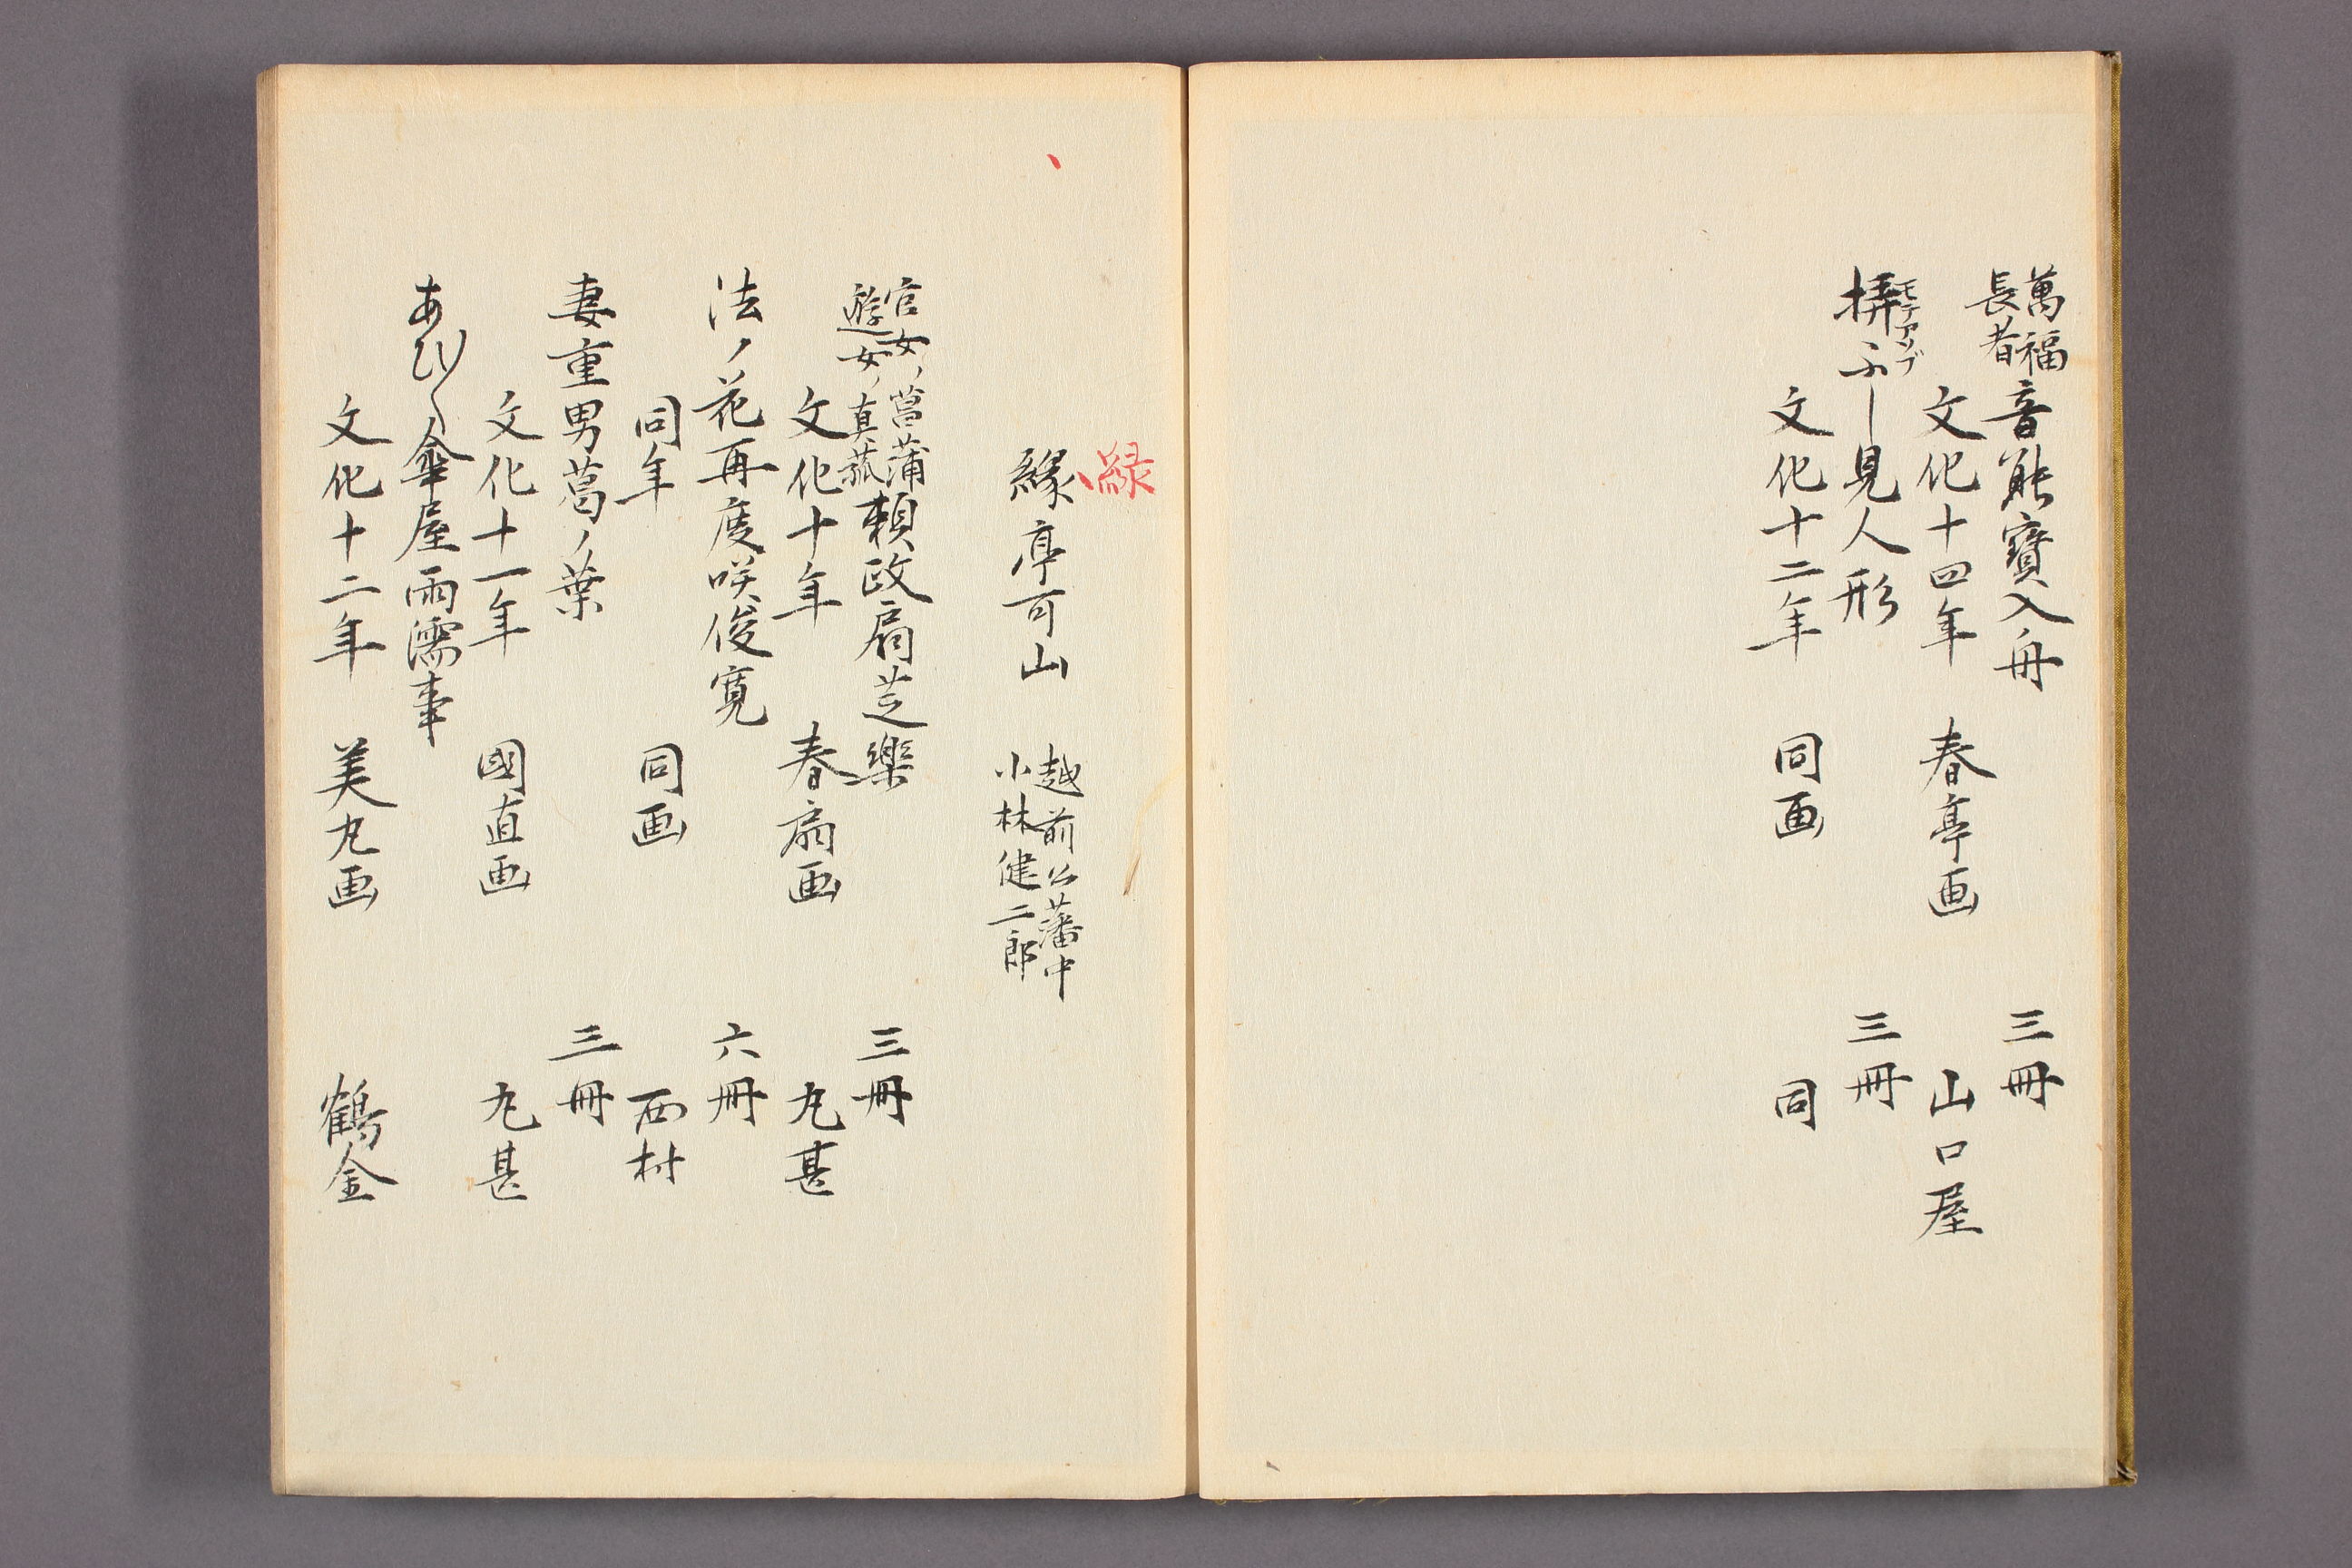 萬福長者 音能寳入舟 三冊
文化十四年 春亭画 山口屋
モテアソブ
見人形 三冊
文化十二年 同画 同
緑
緣亭可山 越前公藩中
小林健二郎
官女ノ菖蒲
遊女ノ真菰 頼政扇芝樂 三冊
文化十年 春扇画 丸甚
法ノ花再度咲俊寛 六冊
同年 同画 西村
妻重男葛ノ葉 三冊
文化十一年 國直画 丸甚
傘屋雨濡事
文化十二年 美丸画 鶴金